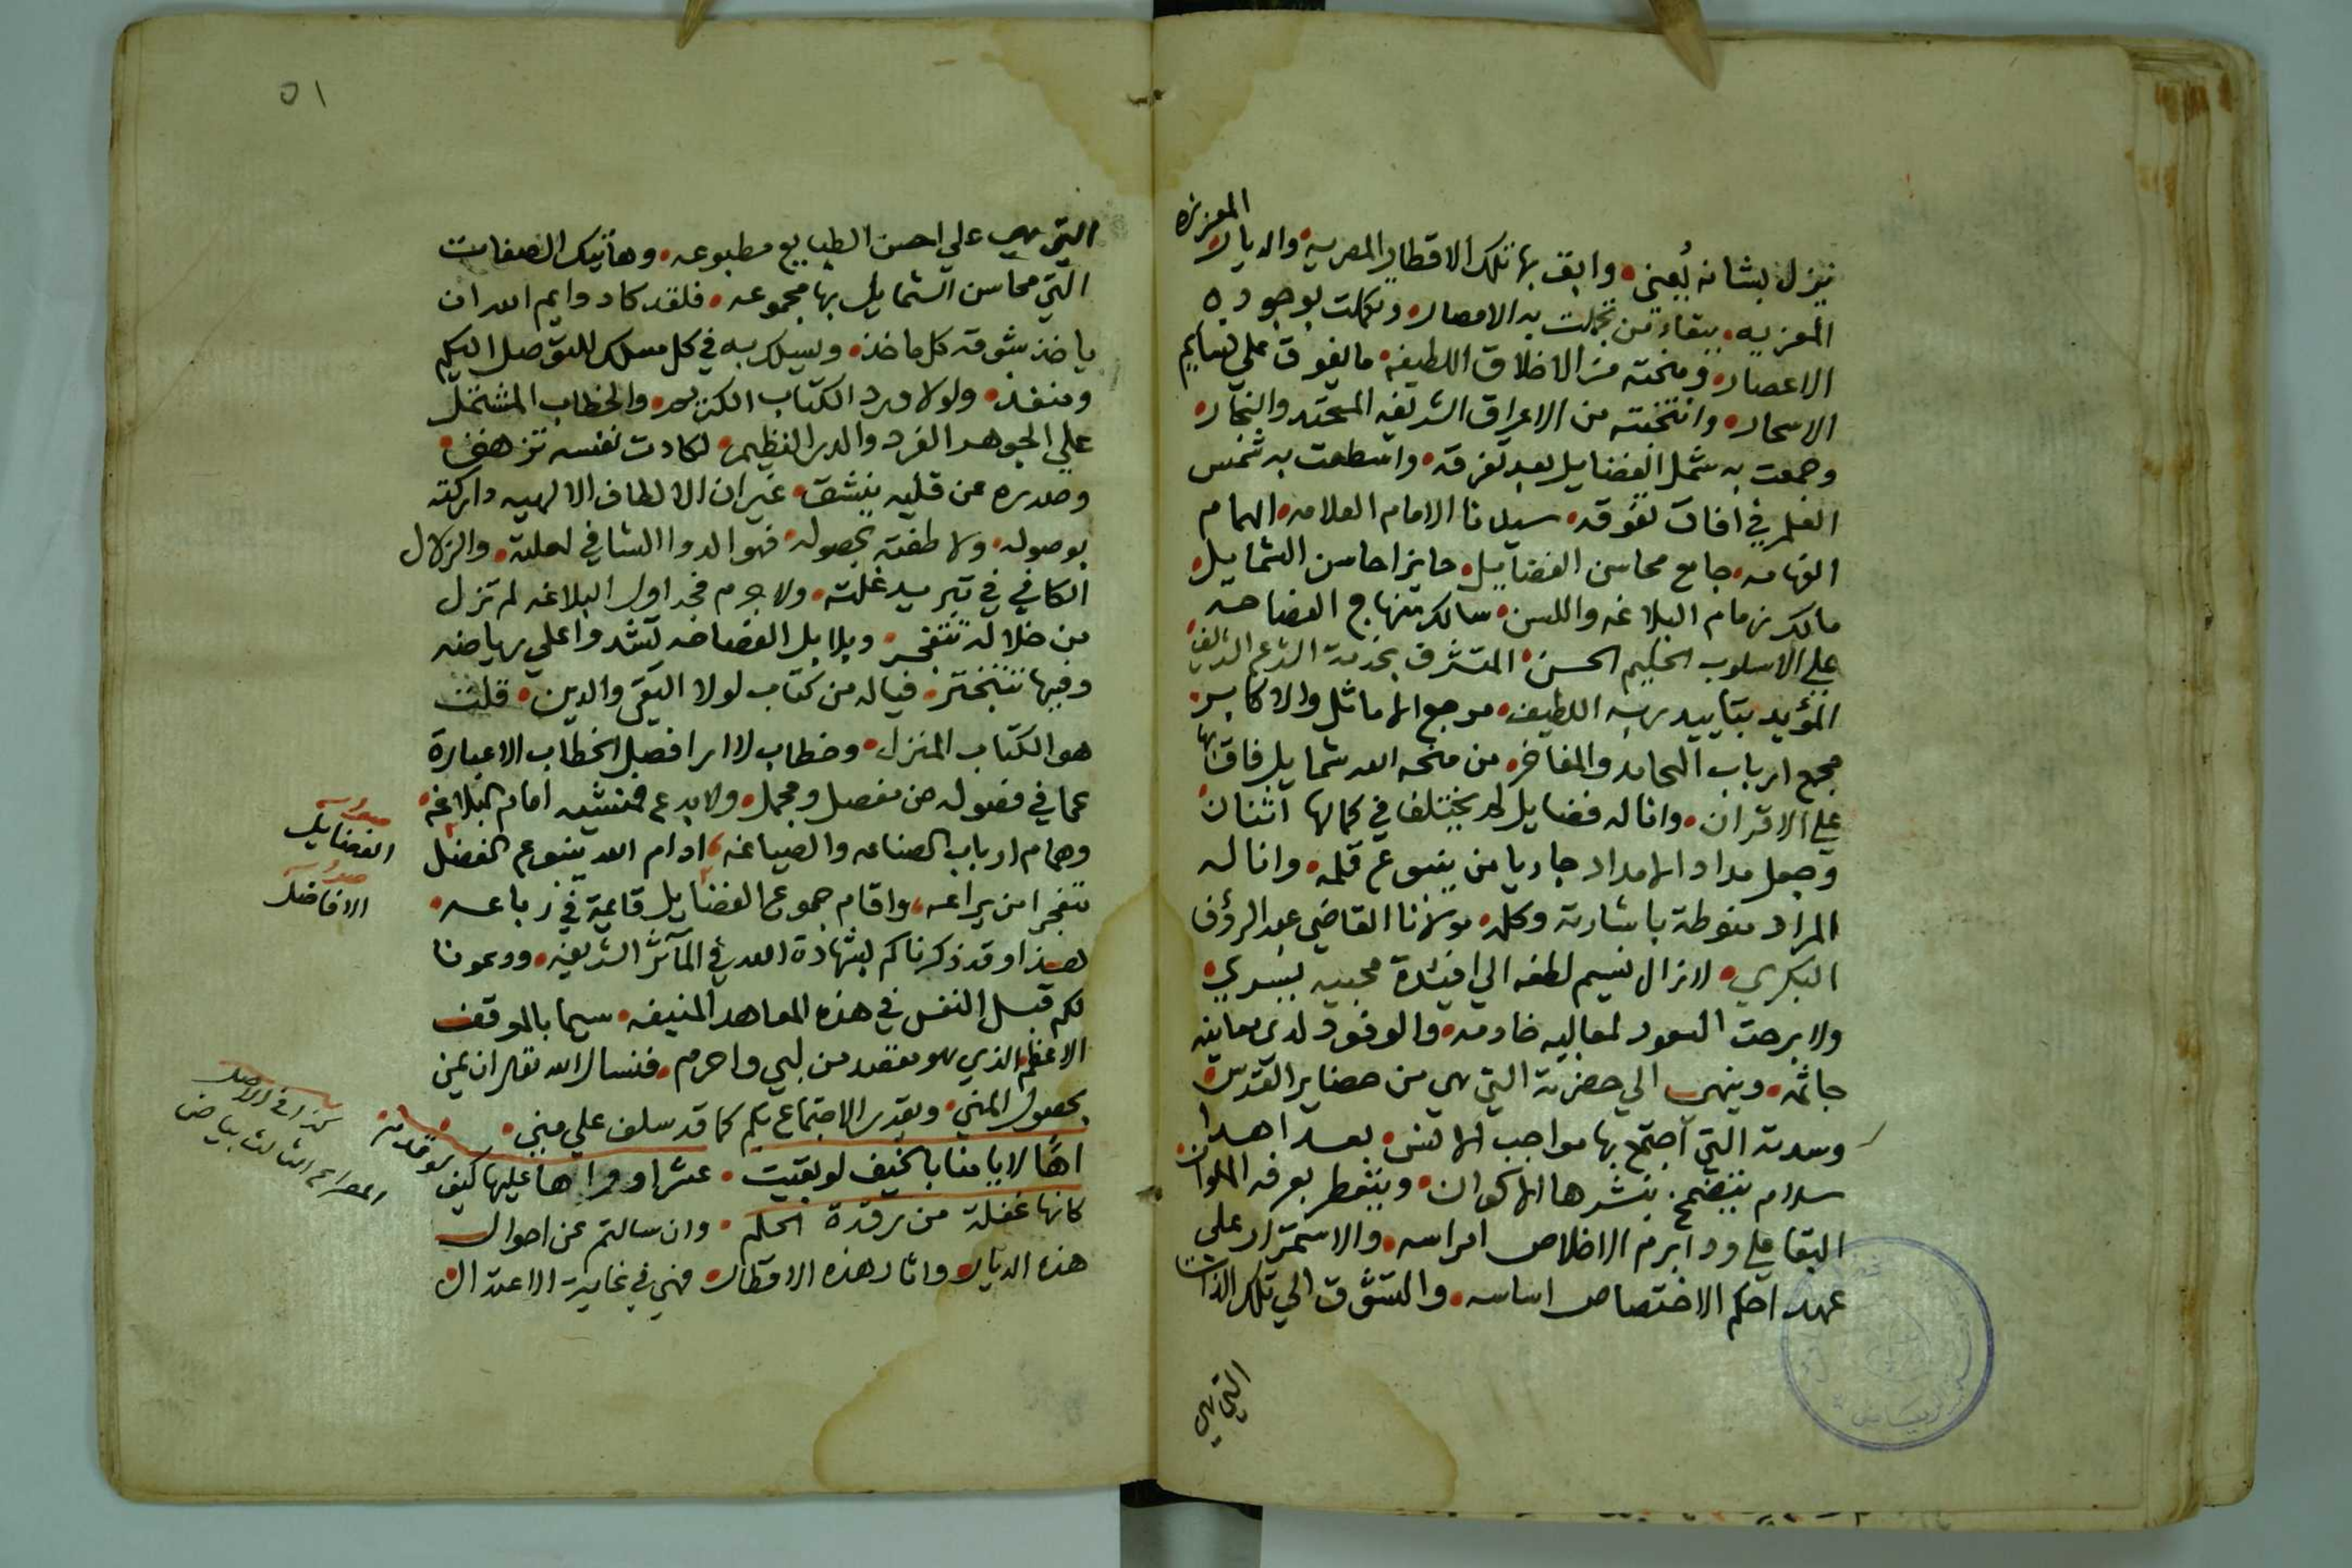 نزل بشانه يُعني • وابق بها تلك الاقطار المصرية • والديار العزيزه
المعزيه • ببقاء من تجملت به الامصار • وتكملت بوجوده
الاعصار • ومنحته من الاخلاق اللطيفه • ما يفوق علي نسايم
الاسحار • وانتخبته من الاعراق الشريفه المحتد والنجار •
وجمعت به شمل الفضايل بعد تفرقه • واسطعت به شمس
العلم في افاق تفوقه • سيدنا الامام العلامه • الهمام
الفهامه • جامع محاسن الفضايل • حايز احاسن الشمايل •
مالك زمام البلاغه واللسن • سالك منهاج الفصاحه
علي الاسلوب الحكيم الحسن • المتشرف بخدمة الشرع الشريف •
المؤيد بتاييد ربه اللطيف • مرجع الاماثل والاكابر •
مجمع ارباب المحامد والمفاخر • من منحه الله شمايل فاق بها
علي الاقران • وانا له فضايل لم يختلف في كمالها اثنان •
وجعل مداد الامداد جاريا من ينبوع قلمه • وانا له
المراد منوطة باشارته وكلمه • مولانا القاضي عبد الرؤف
البكري • لازال نسيم لطفه الي افيدة محبيه يسري •
ولا برحت السعود لمعاليه خادمه • والوفود لدي معاينه
جاثمه • وينهي الي حضرته التي هي من حضاير القدس •
وسدته التي اجتمع بها مواجب الانس • بعد اهدا
سلام يتضمخ بنشرها الاكوان • ويتعطر بعرفه الملوان •
البقا علي ود ابرم الاخلاص امراسه • والاستمرار علي
عهد احكم الاختصاص اساسه • والتشوق الي تلك الذات
التي هي
٥١
التي هي علي احسن الطبايع مطبوعه • وهاتيك الصفات
التي محاسن الشمايل بها مجموعه • فلقد كاد وايم الله ان
ياخذ بشوقه كل ماخذ • ويسلك به في كل مسلك للتوصل اليكم
ومنفذ • ولولا ورد الكتاب الكريم • والخطاب المشتمل
علي الجوهر الفرد والدر النظيم • لكادت نفسه تزهق •
وصدره عن قلبه ينشق • غير ان الالطاف الالهيه داركته
بوصوله • ولاطفته بحصوله • فهو الدوا الشافي لعلته • والزلال
الكافي في تبريد غلته • ولا جرم فجداول البلاغه لم تزل
من خلاله تتفجر • وبلابل الفصاحه تشدوا علي رياضه
وفيها تتبختر • فياله من كتاب لولا التقي والدين • قلت
هو الكتاب المنزل • وخطاب لا ارا فصل الخطاب الا عبارة
عما في فصوله من مفصل ومجمل • ولا بدع فمنشيه امام البلاغه •
وهمام ارباب الصناعه والصياغه • ادام الله ينبوع الفضل
متفجرا من يراعه • واقام جموع الفضايل قاعية في رباعه •
هذا وقد ذكرناكم بشهادة الله في المآثر الشريفه • ودعونا
لكم قبل النفس في هذه المعاهد المنيفه • سيما بالموقف
الاعظم الذي هو مقصد من لبي واحرم • فنسال الله تعالي ان يمن
بحصول المني • ويقدر الاجتماع بكم كما قد سلف علي مني •
اهًا لايامنا بالخيف لو بقيت • عشرا وواها عليها كيف لم تدم
كانها غفلة من رقدة الحلم • وان سالتم عن احوال
هذه الديار • واثار هذه الاقطار • فهي في غاية الاعتدال
صدر
الفضايل
صدر
الافاضل
كذا في الاصل
المصراع الثالث بياض